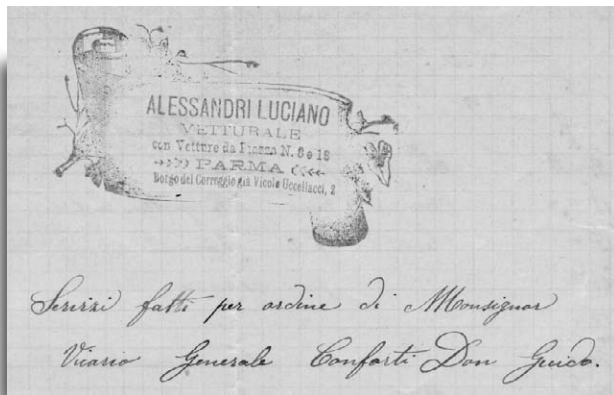 ALESSANDRI LUCIANO
VETTURALE
con Vetture da Piazza N. 8 e 18
PARMA
Borgo del Correggio già Vicolo Uccellacci, 2
Servizi fatti per ordine di Monsignor
Vicario Generale Conforti Don Guido.